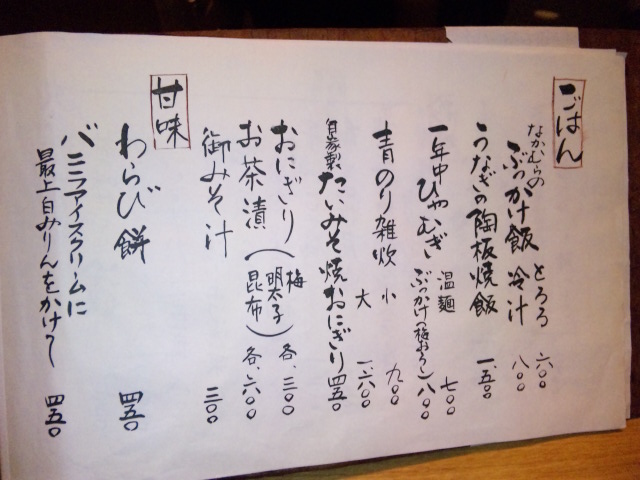 ごはん
なかむらの
ぶっかけ飯 とろろ 六〇〇
冷汁 八〇〇
うなぎの陶板焼飯 一、五〇〇
一年中ひやむぎ 温麺 七〇〇
ぶっかけ(梅おろし) 八〇〇
青のり雑炊 小 九〇〇
大 一、六〇〇
自家製たいみそ焼おにぎり 四五〇
おにぎり(梅 明太子 昆布) 各、三〇〇
お茶漬 各、六〇〇
御みそ汁 三〇〇
甘味
わらび餅 四五〇
バニラアイスクリームに
最上白みりんをかけて 四五〇